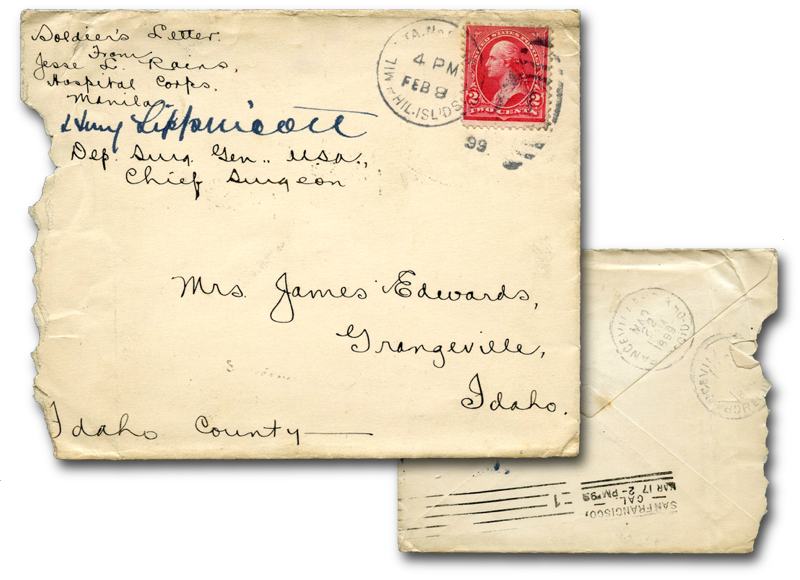 Soldier's Letter.
From
Jesse L. Rains,
Hospital Corps.
Manila
Henry Lippincott
Dep. Surg. Gen.. USA.,
Chief Surgeon
MIL. STA. No.
4 PM
FEB 8
PHIL. ISL'DS
99
UNITED STATES POSTAGE
2 2
TWO CENTS
Mrs. James Edwards,
Grangeville,
Idaho.
Idaho County
1899
SAN FRANCISCO,
CAL
MAR 17 2-PM '99
1